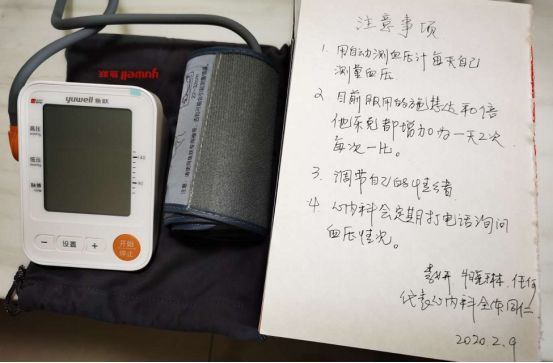 yuwell
yuwell 鱼跃
高压
低压
脉搏
－
设置
＋
开始
停止
22-32cm
注意事项
1. 用自动测血压计每天自己
测量血压
2. 目前服用的施慧达和倍
他乐克都增加为一天2次
每次一片。
3. 调节自己的情绪
4. 心内科会定期打电话询问
血压情况。
代表心内科全体同仁
2020.2.9